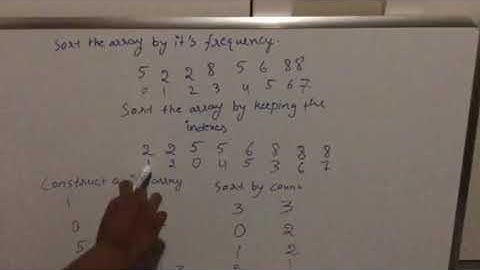 Sort the array by it's frequency.
5 2 2 8 5 6 8 8
0 1 2 3 4 5 6 7.
Sort the array by keeping the
indexes
2 2 5 5 6 8 8 8
1 2 0 4 5 3 6 7
Construct array
Sort by count
1
3 3
0
0 2
5
1 2